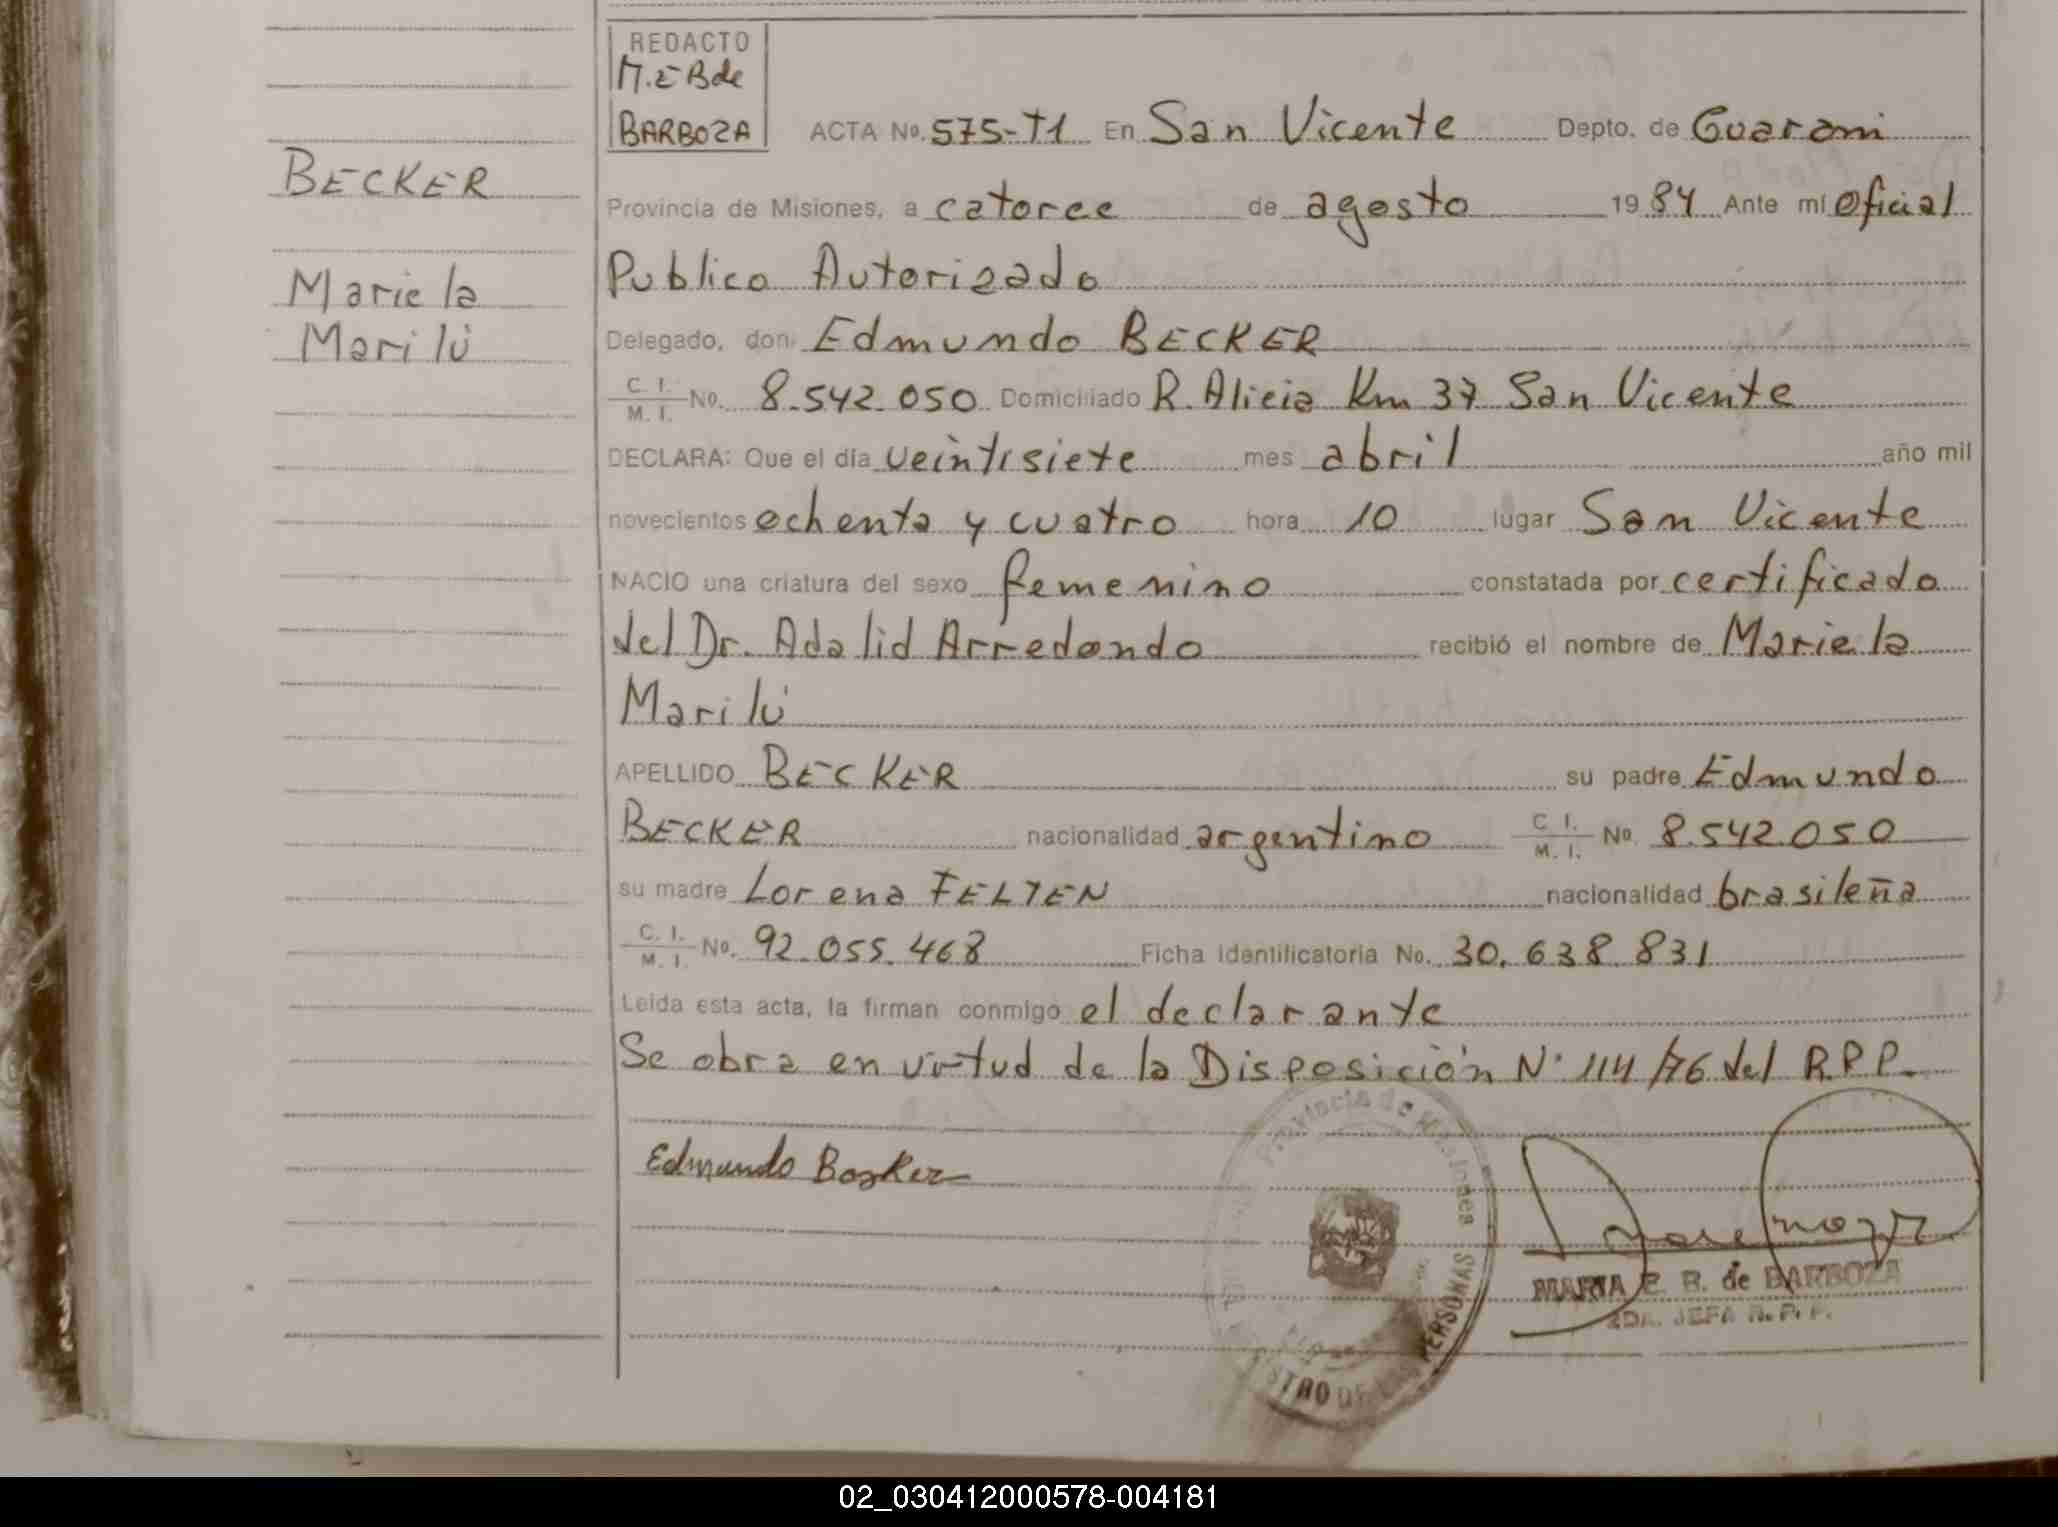 REDACTO
M.E B de
BARBOZA
ACTA No. 575-T1 En San Vicente Depto. de Guarani
BECKER
Provincia de Misiones, a catorce de agosto 1984 Ante mí Oficial
Mariela
Publico Autorizado
Marilú
Delegado, don Edmundo BECKER
C. I.
M. I. No. 8.542.050 Domiciliado R. Alicia Km 37 San Vicente
DECLARA: Que el día veintisiete mes abril año mil
novecientos ochenta y cuatro hora 10 lugar San Vicente
NACIO una criatura del sexo femenino constatada por certificado
del Dr. Adalid Arredondo recibió el nombre de Mariela
Marilú
APELLIDO BECKER su padre Edmundo
BECKER nacionalidad argentino C. I. M. I. No. 8.542.050
su madre Lorena FELTEN nacionalidad brasileña
C. I. M. I. No. 92.055.468 Ficha identificatoria No. 30.638.831
Leída esta acta, la firman conmigo el declarante
Se obra en virtud de la Disposición N° 114/76 del R.P.P.
Edmundo Becker
Provincia de Misiones
REGISTRO DE LAS PERSONAS
MARIA E. B. de BARBOZA
2DA. JEFA R. P. P.
02_030412000578-004181